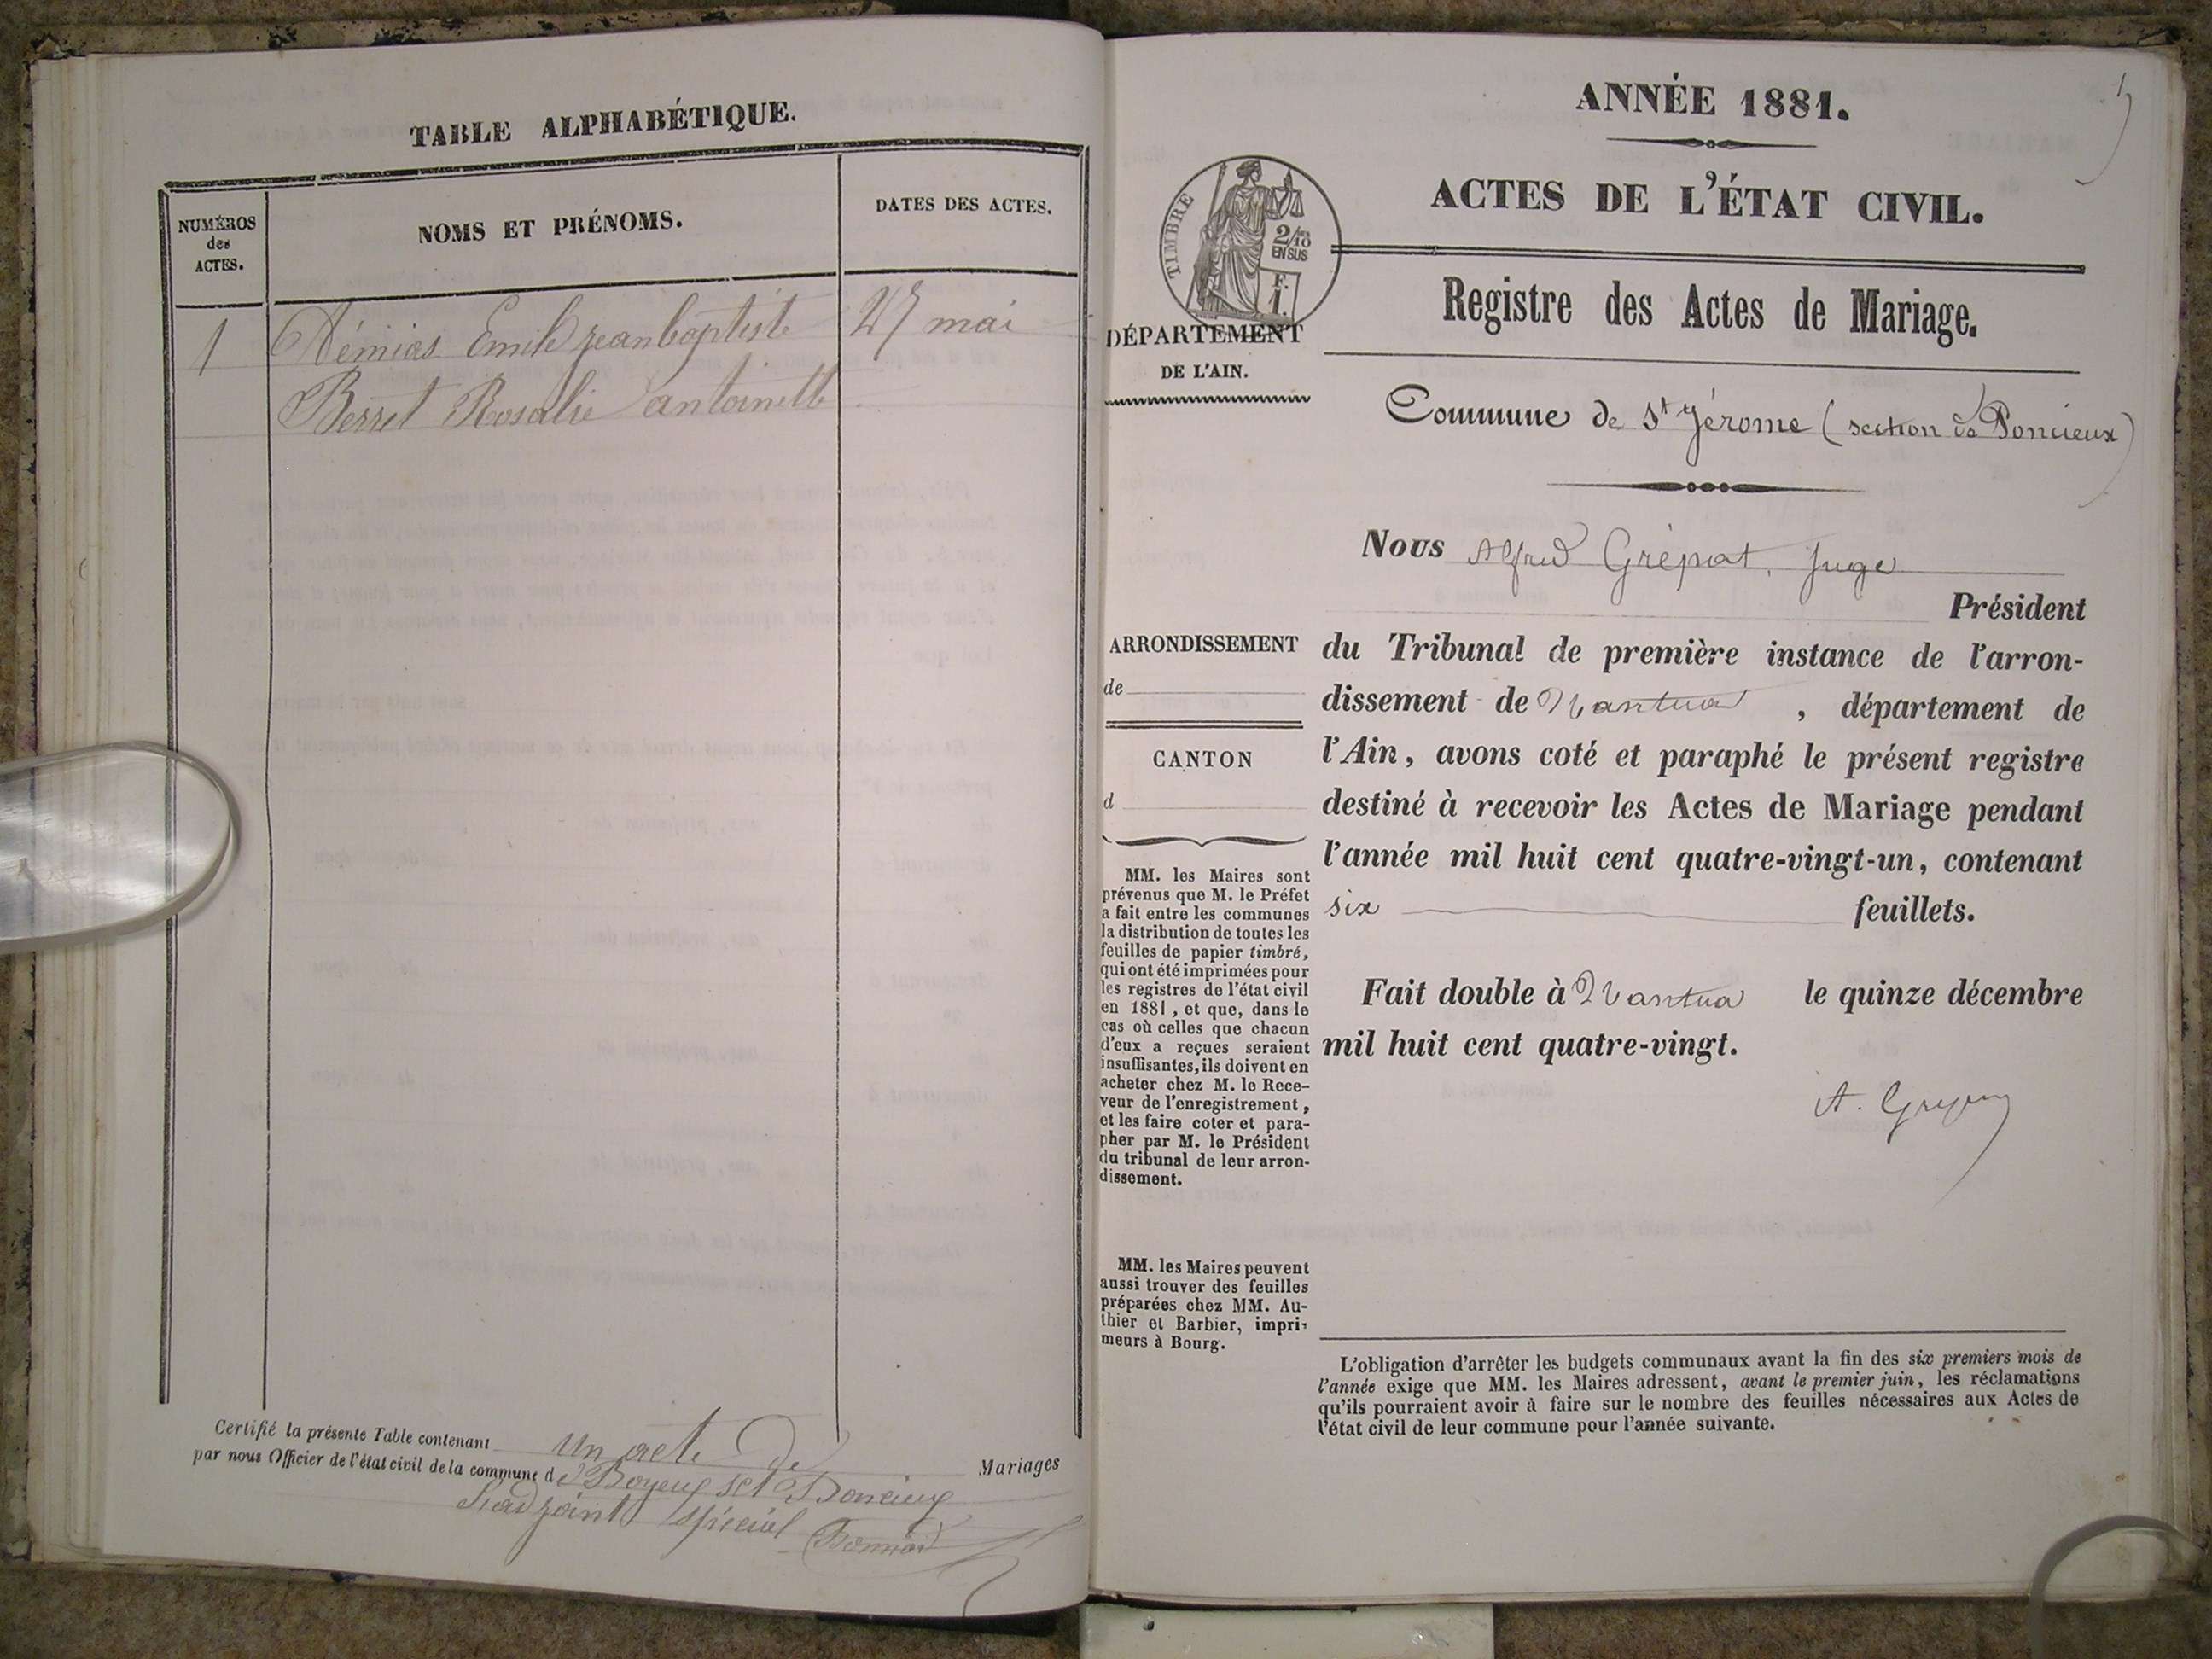 TABLE ALPHABÉTIQUE.
NUMÉROS
des
ACTES.
NOMS ET PRÉNOMS.
DATES DES ACTES.
1
Rémias Emile jean baptiste
27 mai
Berret Rosalie antoinette
Certifié la présente Table contenant un acte de Mariages
par nous Officier de l'état civil de la commune de Boyeux sct Poncieux
L'adjoint spécial
ANNÉE 1881.
ACTES DE L'ÉTAT CIVIL.
TIMBRE
2/10
EN SUS
F.
1.
Registre des Actes de Mariage.
DÉPARTEMENT
DE L'AIN.
Commune de St Jérome (section de Poncieux)
Nous Alfred Grépat, Juge
Président
du Tribunal de première instance de l'arron-
dissement de Nantua, département de
l'Ain, avons coté et paraphé le présent registre
destiné à recevoir les Actes de Mariage pendant
l'année mil huit cent quatre-vingt-un, contenant
six feuillets.
Fait double à Nantua le quinze décembre
mil huit cent quatre-vingt.
ARRONDISSEMENT
de
CANTON
d
MM. les Maires sont
prévenus que M. le Préfet
a fait entre les communes
la distribution de toutes les
feuilles de papier timbré,
qui ont été imprimées pour
les registres de l'état civil
en 1881, et que, dans le
cas où celles que chacun
d'eux a reçues seraient
insuffisantes, ils doivent en
acheter chez M. le Rece-
veur de l'enregistrement,
et les faire coter et para-
pher par M. le Président
du tribunal de leur arron-
dissement.
MM. les Maires peuvent
aussi trouver des feuilles
préparées chez MM. Au-
thier et Barbier, impri-
meurs à Bourg.
L'obligation d'arrêter les budgets communaux avant la fin des six premiers mois de
l'année exige que MM. les Maires adressent, avant le premier juin, les réclamations
qu'ils pourraient avoir à faire sur le nombre des feuilles nécessaires aux Actes de
l'état civil de leur commune pour l'année suivante.